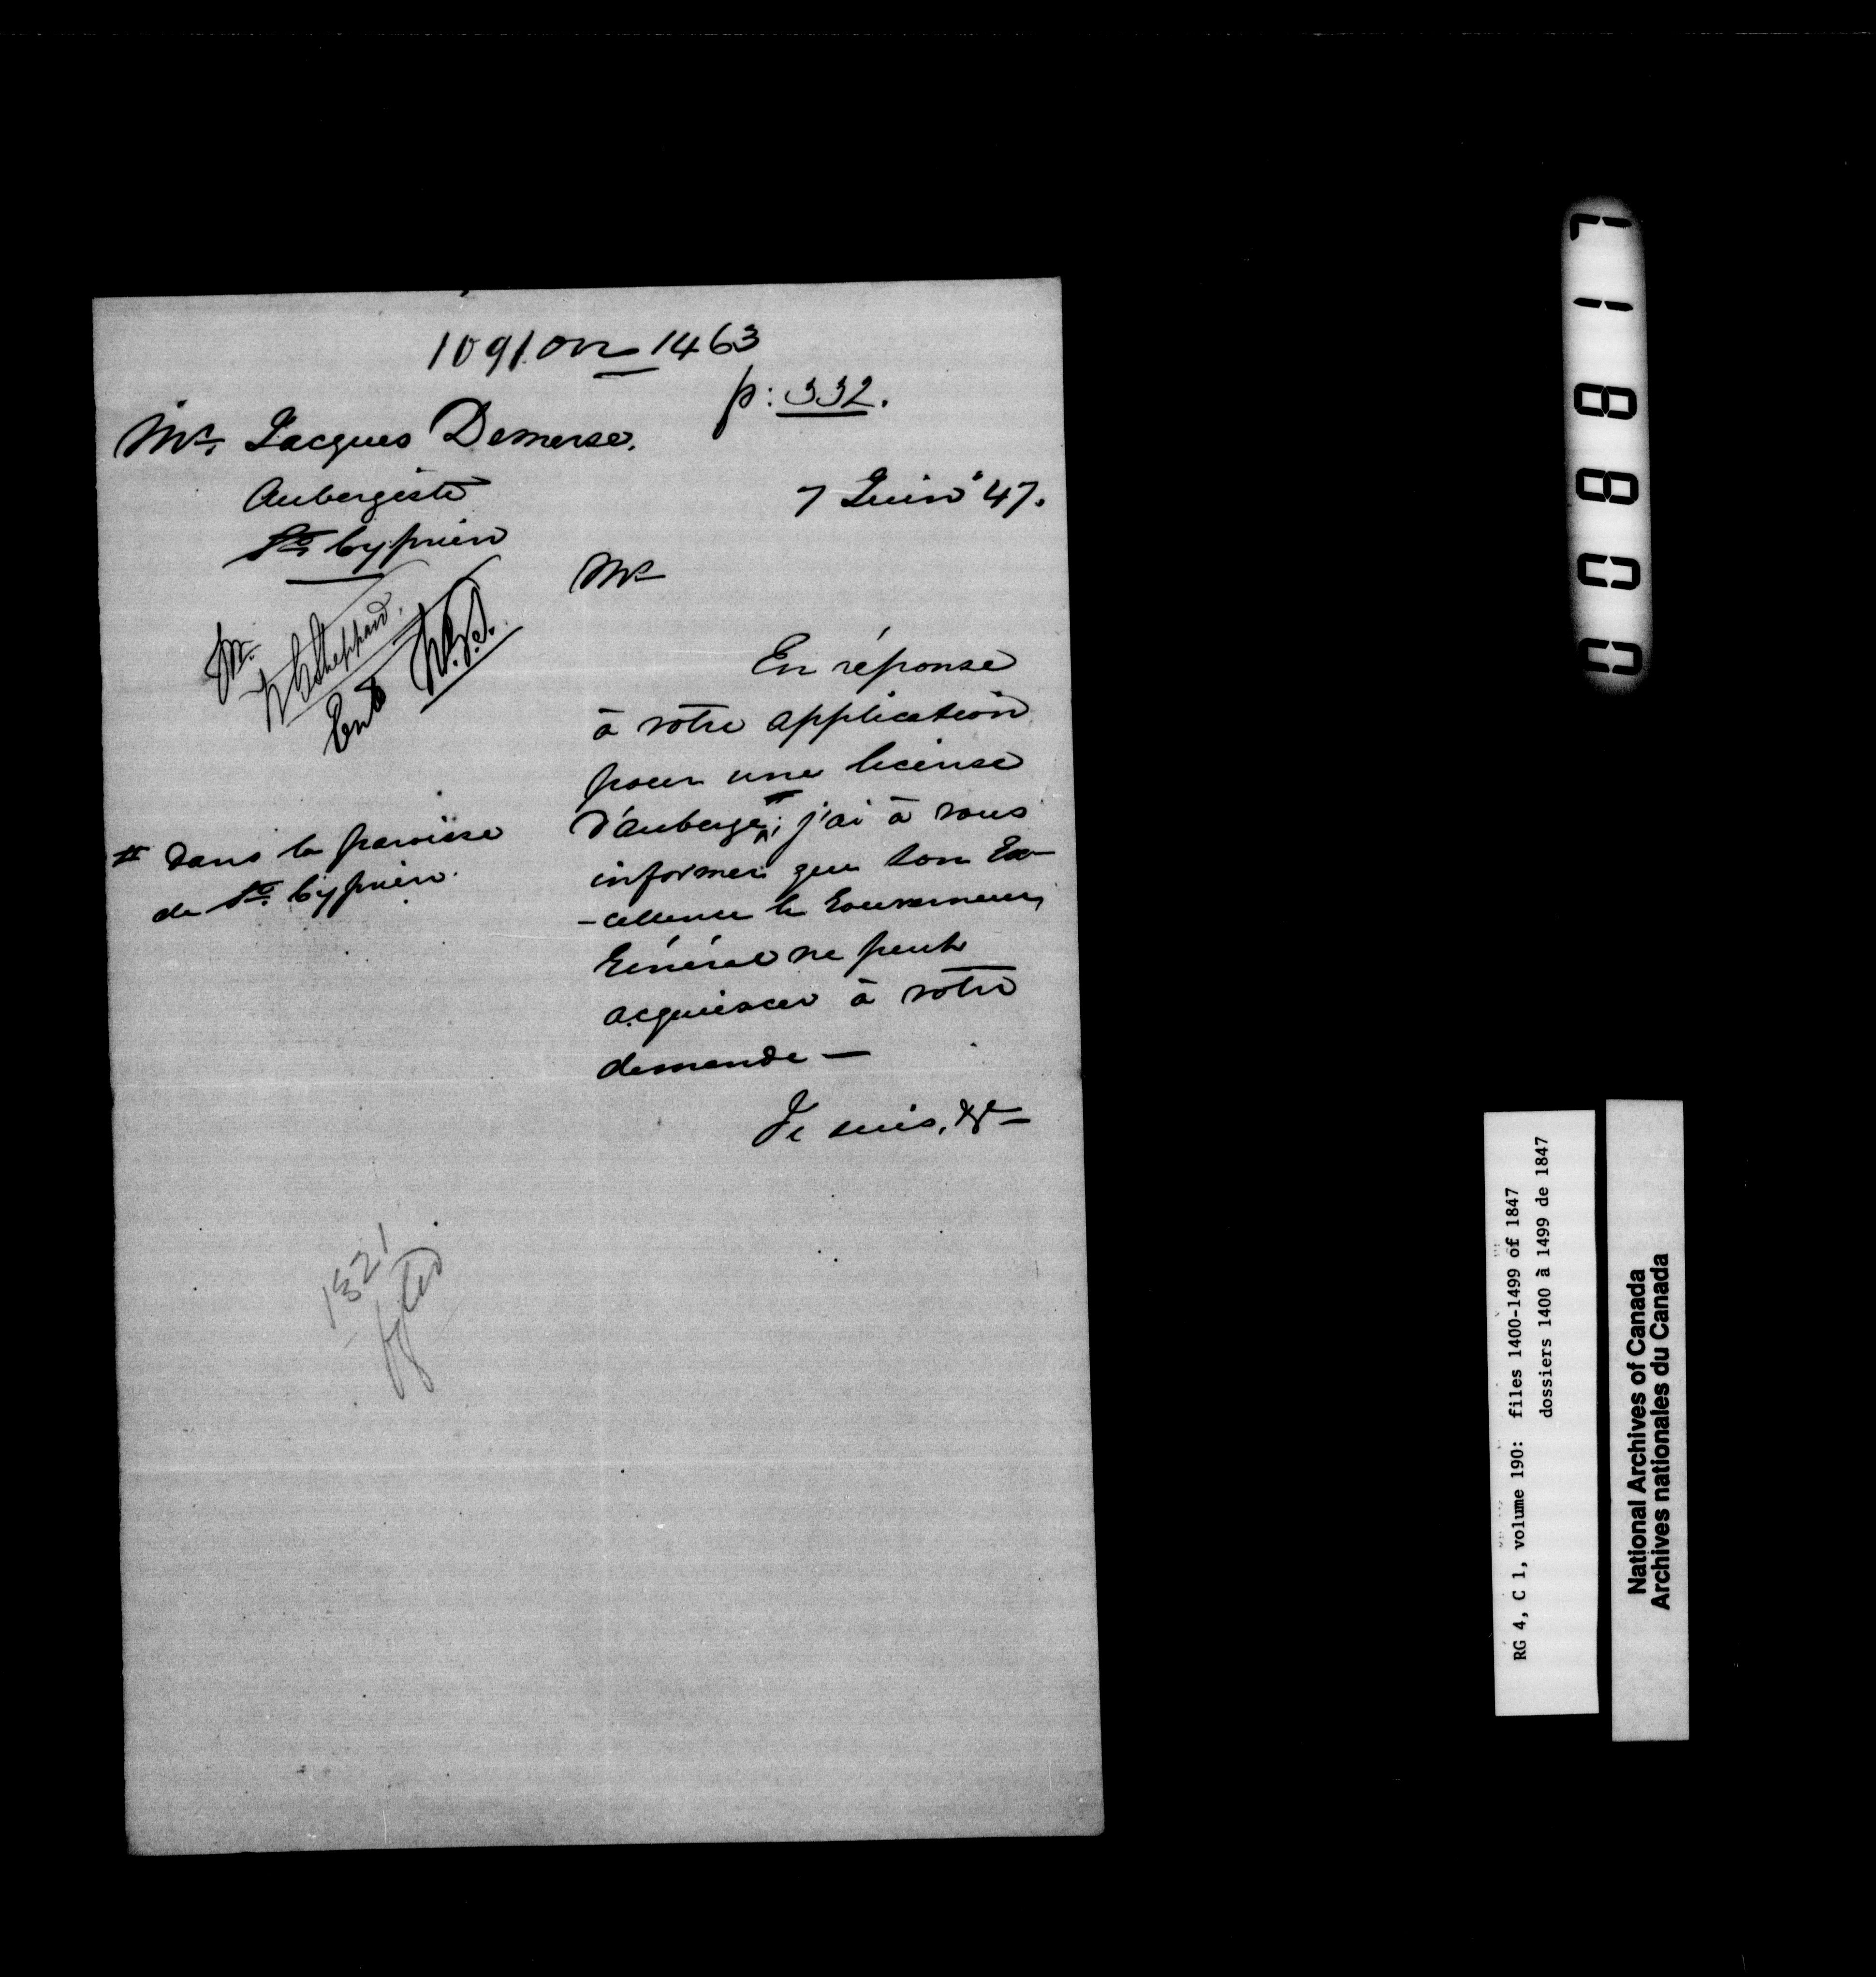 1091 on 1463
p: 332.
Mr. Jacques Demerse.
Aubergiste
St. Cyprien
7 Juin '47.
Mr
Mr.
W G Sheppard.
Entd W.G.S.
En réponse
à votre application
pour une license
d'auberge #; j'ai à vous
# dans la paroisse
de St. Cyprien.
informer que Son Ex-
-cellence le Gouverneur
Général ne peut
acquiescer à votre
demande —
Je suis, &c —
1321
0008817
RG 4, C 1, volume 190: files 1400-1499 of 1847
dossiers 1400 à 1499 de 1847
National Archives of Canada
Archives nationales du Canada